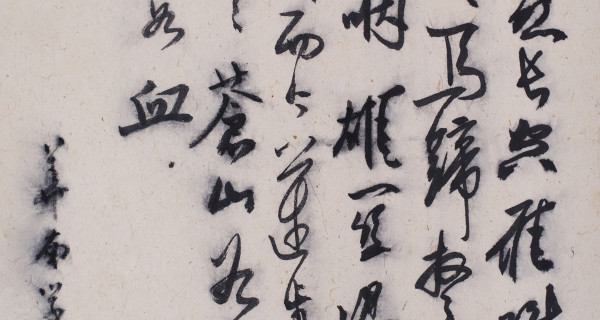 烈长空雁叫
马蹄声
咽雄关漫
而今邁步
蒼山如
如血